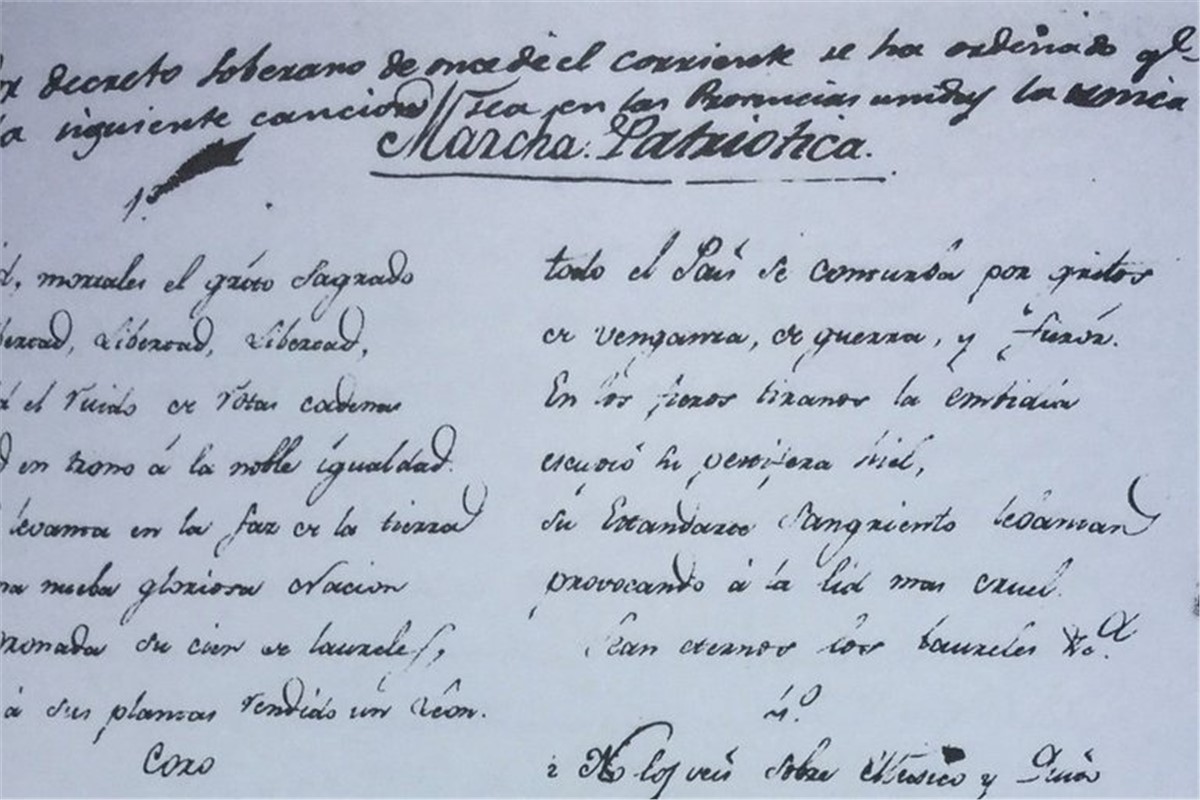 decreto Soberano de once del corriente se ha ordenado qe
siguiente cancion sea en las Provincias unidas la unica
Marcha Patriotica.
1º
mortales el grito Sagrado
Libertad, Libertad,
el ruido de rotas cadenas
en trono á la noble igualdad.
levanta en la faz de la tierra
nueba gloriosa Nacion
su cien de laureles,
á sus plantas rendido un Leon.
Coro
todo el Pais se conturba por gritos
de venganza, de guerra, y furór.
En los fieros tiranos la embidia
escupió su pestifera hiel,
su Estandarte Sangriento lebantan
provocando á la lid mas cruel.
Sean eternos los Laureles &a.
4º
No los veis sobre Mexico y Quito